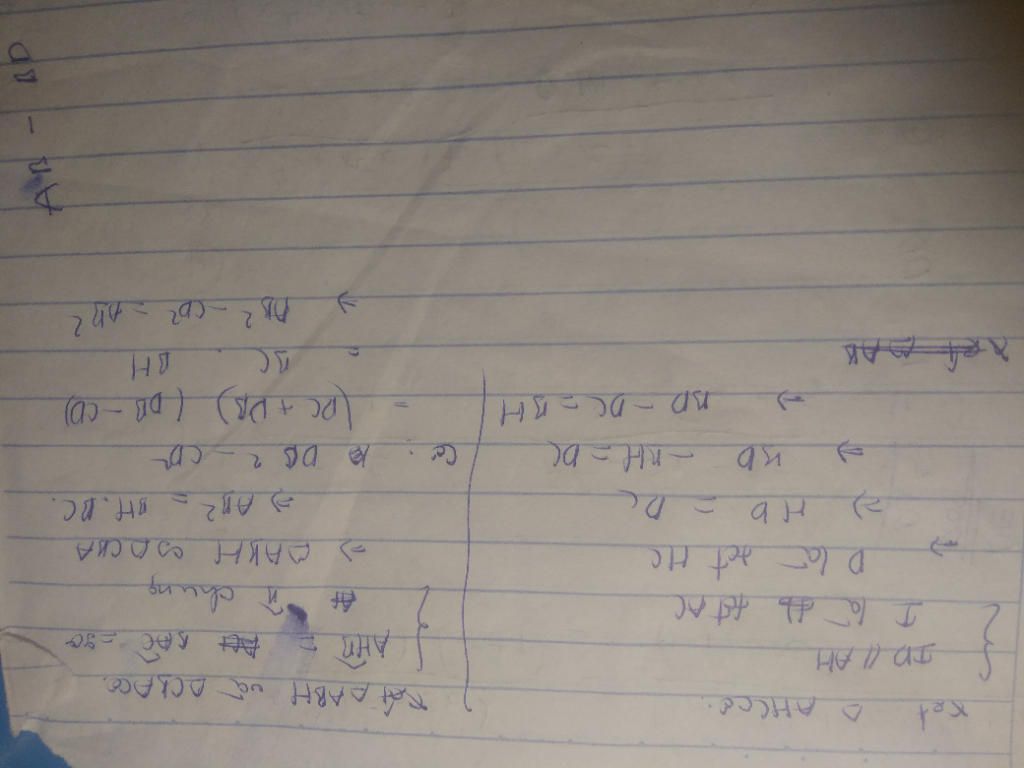 Xét Δ AHC có.
{ ID // AH
I là tđ AC
⇒ D là tđ HC
⇒ HD = DC
⇒ BD - BH = DC
⇒ BD - DC = BH
Xét Δ ABH và Δ CBA có.
{ AHB = BAC = 90
B chung
⇒ Δ ABH ∽ Δ CBA
⇒ AB² = BH . BC.
Có : DB² - CD²
= (DC + DB) (DB - CD)
= BC . BH
⇒ DB² - CD² = AB²